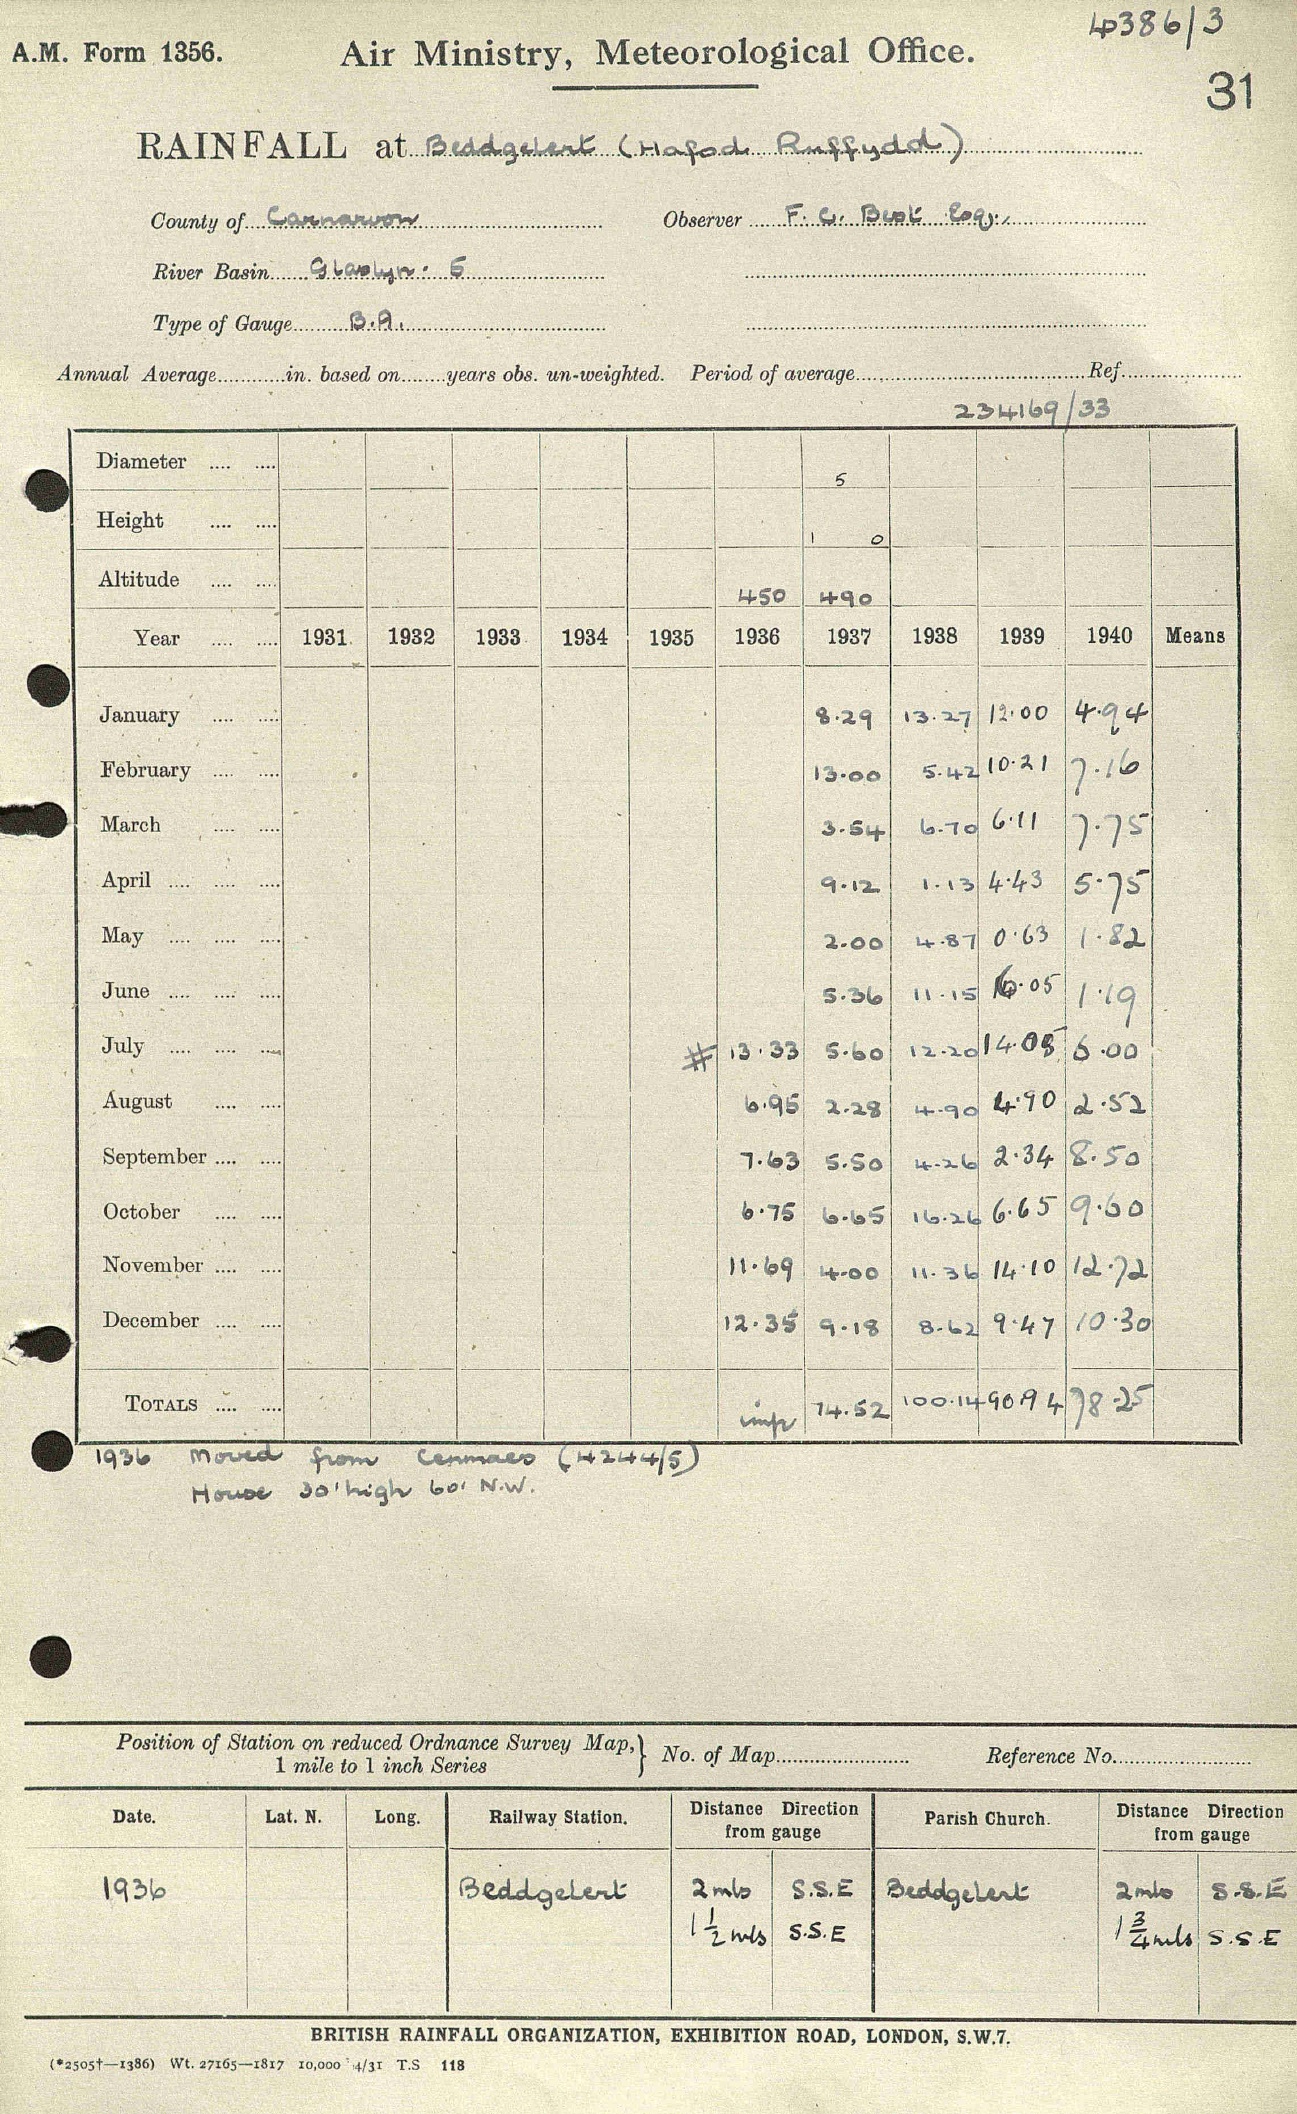 4386/3
A.M. Form 1356. Air Ministry, Meteorological Office.
31
RAINFALL at Beddgelert (Hafod Ruffydd)
County of Carnarvon Observer F. C. Best Esq.,
River Basin Glaslyn. 5
Type of Gauge B.A.
Annual Average in. based on years obs. un-weighted. Period of average Ref.
234169/33
Diameter 5
Height 1 0
Altitude 450 490
Year 1931 1932 1933 1934 1935 1936 1937 1938 1939 1940 Means
January 8.29 13.27 12.00 4.94
February 13.00 5.42 10.21 7.16
March 3.54 6.70 6.11 7.75
April 9.12 1.13 4.43 5.75
May 2.00 4.87 0.63 1.82
June 5.36 11.15 6.05 1.19
July # 13.33 5.60 12.20 14.05 6.00
August 6.95 2.28 4.90 4.90 2.52
September 7.63 5.50 4.26 2.34 8.50
October 6.75 6.65 16.26 6.65 9.60
November 11.69 4.00 11.36 14.10 12.72
December 12.35 9.18 8.62 9.47 10.30
TOTALS imp 74.52 100.14 90.94 78.25
1936 Moved from Cenmaes (4244/5)
House 30' high 60' N.W.
Position of Station on reduced Ordnance Survey Map, } No. of Map Reference No.
1 mile to 1 inch Series
Date. Lat. N. Long. Railway Station. Distance Direction from gauge Parish Church. Distance Direction from gauge
1936 Beddgelert 2 mls S.S.E Beddgelert 2 mls S.S.E
1 1/2 mls S.S.E 1 3/4 mls S.S.E
BRITISH RAINFALL ORGANIZATION, EXHIBITION ROAD, LONDON, S.W.7.
(*2505†—1386) Wt. 27165—1817 10,000 4/31 T.S 118